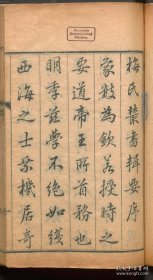 梅氏叢書輯要序
象數為欽若授時之
要道帝王所首務也
明季茲學不絕如綫
西海之士乘機居奇